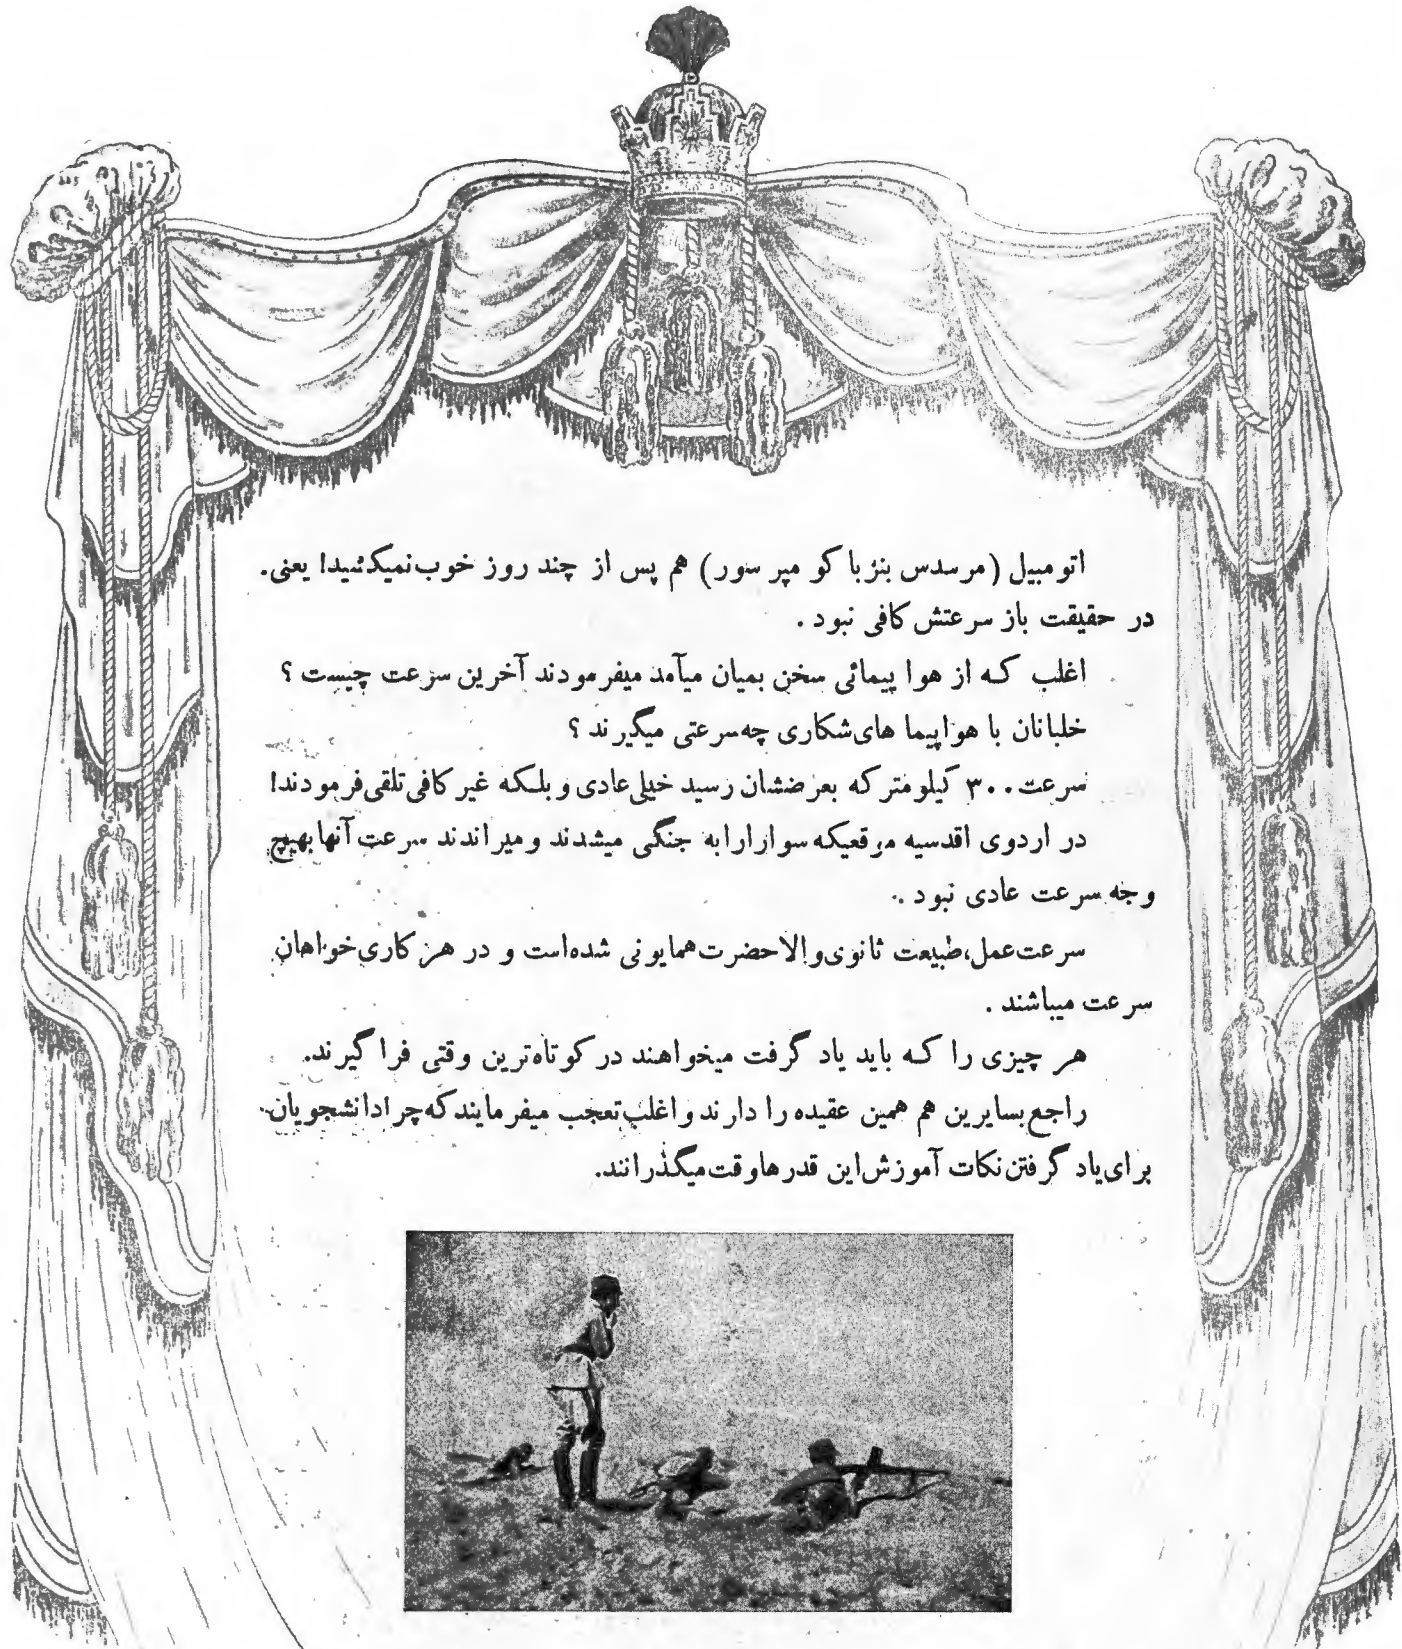 اتومبیل (مرسدس بنز با کومپرسور) هم پس از چند روز خوب نمیکشید! یعنی
در حقیقت باز سرعتش کافی نبود .
اغلب که از هواپیمائی سخن بمیان میآمد میفرمودند آخرین سرعت چیست ؟
خلبانان با هواپیما های شکاری چه سرعتی میگیرند ؟
سرعت ۳۰۰ کیلومتر که بعرضشان رسید خیلی عادی و بلکه غیر کافی تلقی فرمودند!
در اردوی اقدسیه موقعیکه سوار ارابه جنگی میشدند و میراندند سرعت آنها بهیچ
وجه سرعت عادی نبود .
سرعت عمل، طبیعت ثانوی والاحضرت همایونی شده است و در هر کاری خواهان
سرعت میباشند .
هر چیزی را که باید یاد گرفت میخواهند در کوتاه‌ترین وقتی فرا گیرند.
راجع بسایرین هم همین عقیده را دارند و اغلب تعجب میفرمایند که چرا دانشجویان
برای یاد گرفتن نکات آموزش این قدرها وقت میگذرانند.